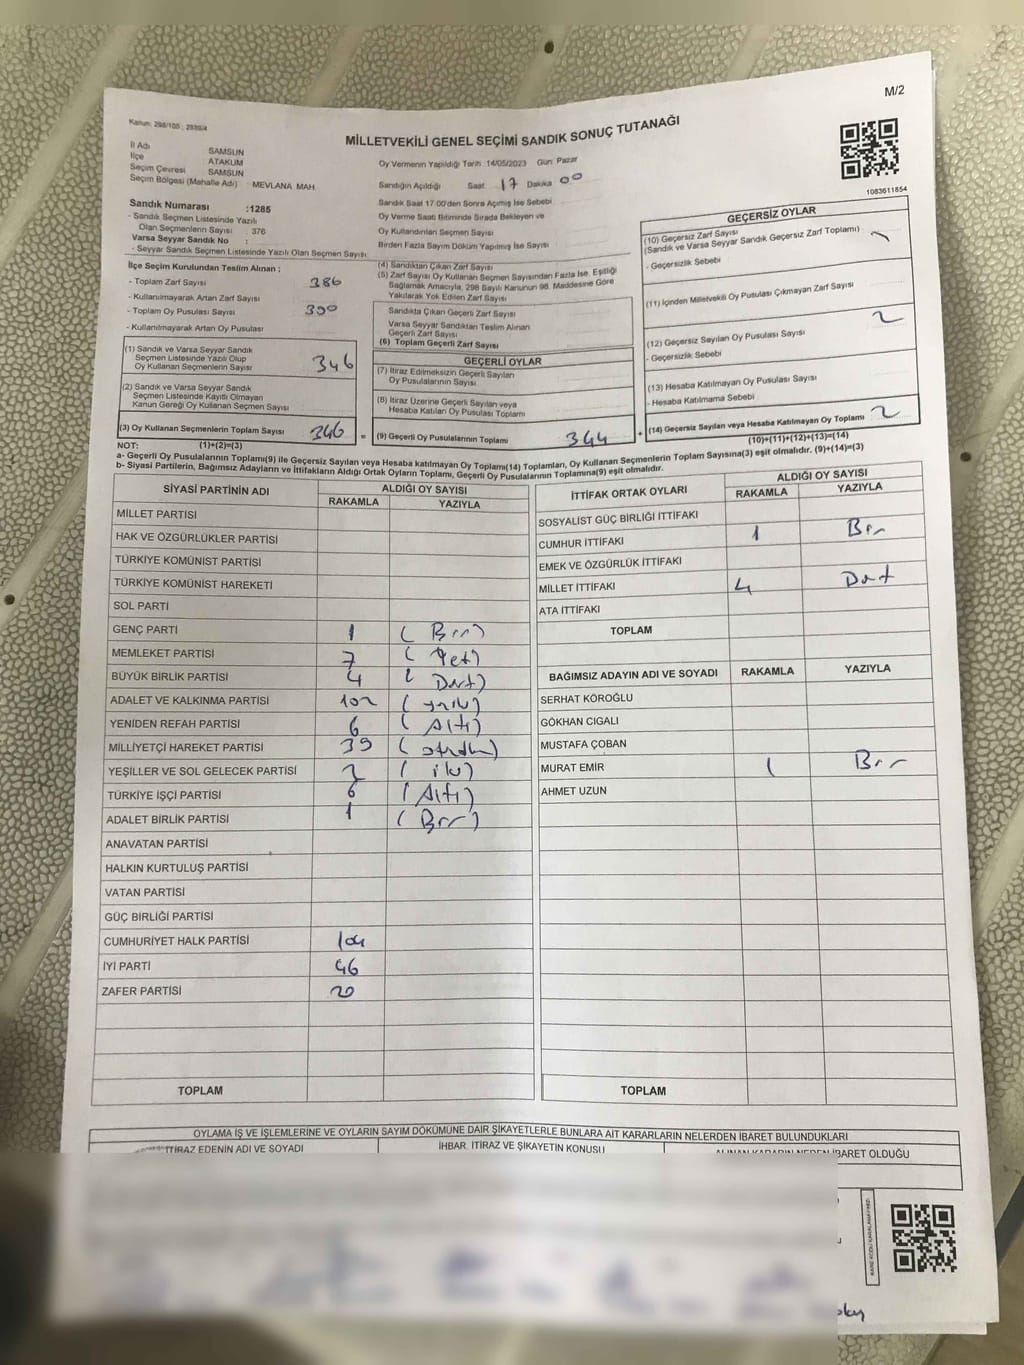 M/2
Kanun: 298/105 ; 2839/4
MİLLETVEKİLİ GENEL SEÇİMİ SANDIK SONUÇ TUTANAĞI
İl Adı SAMSUN
İlçe ATAKUM
Seçim Çevresi SAMSUN
Seçim Bölgesi (Mahalle Adı) : MEVLANA MAH.
Oy Vermenin Yapıldığı Tarih 14/05/2023 Gün: Pazar
Sandığın Açıldığı Saat: 17 Dakika 00
1083611854
Sandık Numarası :1285
- Sandık Seçmen Listesinde Yazılı
Olan Seçmenlerin Sayısı : 376
Varsa Seyyar Sandık No :
- Seyyar Sandık Seçmen Listesinde Yazılı Olan Seçmen Sayısı:
Sandık Saat 17.00'den Sonra Açılmış İse Sebebi
Oy Verme Saati Bitiminde Sırada Bekleyen ve
Oy Kullandırılan Seçmen Sayısı
Birden Fazla Sayım Döküm Yapılmış İse Sayısı
İlçe Seçim Kurulundan Teslim Alınan :
- Toplam Zarf Sayısı 386
- Kullanılmayarak Artan Zarf Sayısı
- Toplam Oy Pusulası Sayısı 390
- Kullanılmayarak Artan Oy Pusulası
(1) Sandık ve Varsa Seyyar Sandık
Seçmen Listesinde Yazılı Olup
Oy Kullanan Seçmenlerin Sayısı 346
(2) Sandık ve Varsa Seyyar Sandık
Seçmen Listesinde Kayıtlı Olmayan
Kanun Gereği Oy Kullanan Seçmen Sayısı
(3) Oy Kullanan Seçmenlerin Toplam Sayısı 346
(1)+(2)=(3)
(4) Sandıktan Çıkan Zarf Sayısı
(5) Zarf Sayısı Oy Kullanan Seçmen Sayısından Fazla İse, Eşitliği
Sağlamak Amacıyla, 298 Sayılı Kanunun 98. Maddesine Göre
Yakılarak Yok Edilen Zarf Sayısı
Sandıkta Çıkan Geçerli Zarf Sayısı
Varsa Seyyar Sandıktan Teslim Alınan
Geçerli Zarf Sayısı
(6) Toplam Geçerli Zarf Sayısı
GEÇERLİ OYLAR
(7) İtiraz Edilmeksizin Geçerli Sayılan
Oy Pusulalarının Sayısı
(8) İtiraz Üzerine Geçerli Sayılan veya
Hesaba Katılan Oy Pusulası Toplamı
= (9) Geçerli Oy Pusulalarının Toplamı 344 +
GEÇERSİZ OYLAR
(10) Geçersiz Zarf Sayısı
(Sandık ve Varsa Seyyar Sandık Geçersiz Zarf Toplamı)
- Geçersizlik Sebebi
(11) İçinden Milletvekili Oy Pusulası Çıkmayan Zarf Sayısı
(12) Geçersiz Sayılan Oy Pusulası Sayısı 2
- Geçersizlik Sebebi
(13) Hesaba Katılmayan Oy Pusulası Sayısı
- Hesaba Katılmama Sebebi
(14) Geçersiz Sayılan veya Hesaba Katılmayan Oy Toplamı 2
(10)+(11)+(12)+(13)=(14)
NOT:
a- Geçerli Oy Pusulalarının Toplamı(9) ile Geçersiz Sayılan veya Hesaba katılmayan Oy Toplamı(14) Toplamları, Oy Kullanan Seçmenlerin Toplam Sayısına(3) eşit olmalıdır. (9)+(14)=(3)
b- Siyasi Partilerin, Bağımsız Adayların ve İttifakların Aldığı Ortak Oyların Toplamı, Geçerli Oy Pusulalarının Toplamına(9) eşit olmalıdır.
SİYASİ PARTİNİN ADI ALDIĞI OY SAYISI
RAKAMLA YAZIYLA
MİLLET PARTİSİ
HAK VE ÖZGÜRLÜKLER PARTİSİ
TÜRKİYE KOMÜNİST PARTİSİ
TÜRKİYE KOMÜNİST HAREKETİ
SOL PARTİ
GENÇ PARTİ 1 ( Bir )
MEMLEKET PARTİSİ 7 ( Yedi )
BÜYÜK BİRLİK PARTİSİ 4 ( Dört )
ADALET VE KALKINMA PARTİSİ 102
YENİDEN REFAH PARTİSİ 6 ( Altı )
MİLLİYETÇİ HAREKET PARTİSİ 39
YEŞİLLER VE SOL GELECEK PARTİSİ 2 ( iki )
TÜRKİYE İŞÇİ PARTİSİ 6 ( Altı )
ADALET BİRLİK PARTİSİ 1 ( Bir )
ANAVATAN PARTİSİ
HALKIN KURTULUŞ PARTİSİ
VATAN PARTİSİ
GÜÇ BİRLİĞİ PARTİSİ
CUMHURİYET HALK PARTİSİ 104
İYİ PARTİ 46
ZAFER PARTİSİ 20
TOPLAM
İTTİFAK ORTAK OYLARI ALDIĞI OY SAYISI
RAKAMLA YAZIYLA
SOSYALİST GÜÇ BİRLİĞİ İTTİFAKI
CUMHUR İTTİFAKI 1 Bir
EMEK VE ÖZGÜRLÜK İTTİFAKI
MİLLET İTTİFAKI 4 Dört
ATA İTTİFAKI
TOPLAM
BAĞIMSIZ ADAYIN ADI VE SOYADI RAKAMLA YAZIYLA
SERHAT KÖROĞLU
GÖKHAN CIGALI
MUSTAFA ÇOBAN
MURAT EMİR 1 Bir
AHMET UZUN
TOPLAM
OYLAMA İŞ VE İŞLEMLERİNE VE OYLARIN SAYIM DÖKÜMÜNE DAİR ŞİKAYETLERLE BUNLARA AİT KARARLARIN NELERDEN İBARET BULUNDUKLARI
İTİRAZ EDENİN ADI VE SOYADI İHBAR, İTİRAZ VE ŞİKAYETİN KONUSU ALINAN KARARIN NEDEN İBARET OLDUĞU